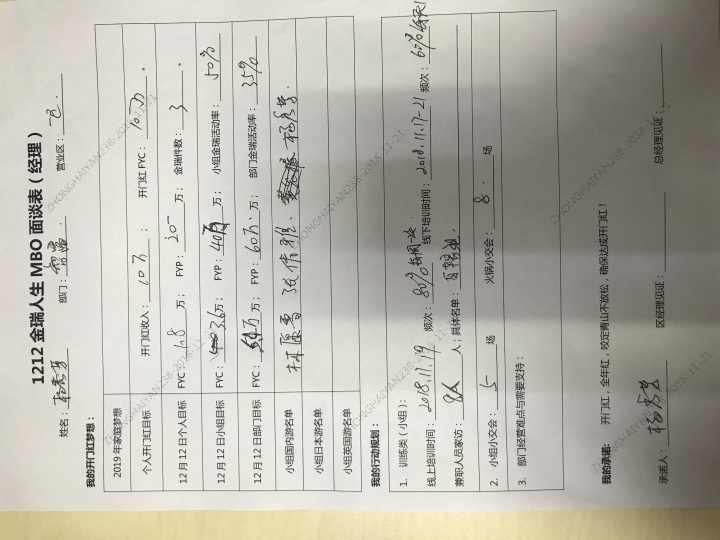 1212 金瑞人生 MBO 面谈表（经理）
姓名： 部门： 营业区：一区.
我的开门红梦想：
2019 年家庭梦想
个人开门红目标 开门红收入：10万； 开门红 FYC：10万。
12 月 12 日个人目标 FYC：1.8万； FYP：20万； 金瑞件数：3。
12 月 12 日小组目标 FYC：3.6万； FYP：40万； 小组金瑞活动率：50%
12 月 12 日部门目标 FYC：万； FYP：60万； 部门金瑞活动率：35%
小组国内游名单
小组日本游名单
小组英国游名单
我的行动规划：
1. 训练类（小组）：
线上培训时间：2018.11.19 频次：80% 每周一次. 线下培训时间：2018.11.17-21 频次：60%
兼职人员家访：8人；具体名单：
2. 小组小交会：5场 火锅小交会：8场
3. 部门经营难点与需要支持：
我的承诺： 开门红，全年红，咬定青山不放松，确保达成开门红！
承诺人： 区经理见证： 总经理见证：
ZHONGHAIYAN238-2018-11-21